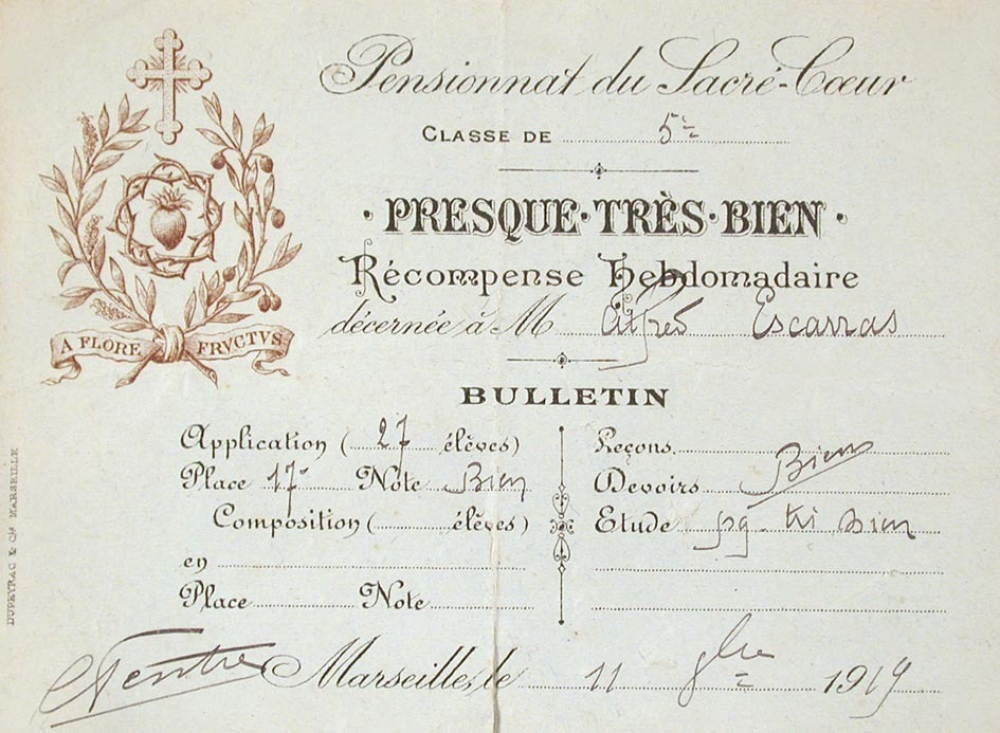 Pensionnat du Sacré-Cœur
CLASSE DE 5e
· PRESQUE · TRÈS · BIEN ·
Récompense Hebdomadaire
décernée à M Alfred Escarras
A FLORE FRVCTVS
BULLETIN
Application (27 élèves)
Place 17e Note Bien
Composition ( élèves)
en
Place Note
Leçons
Devoirs Bien
Etude pq. tr Bien
Marseille, le 11 1919
DUPEYRAC & Cie MARSEILLE